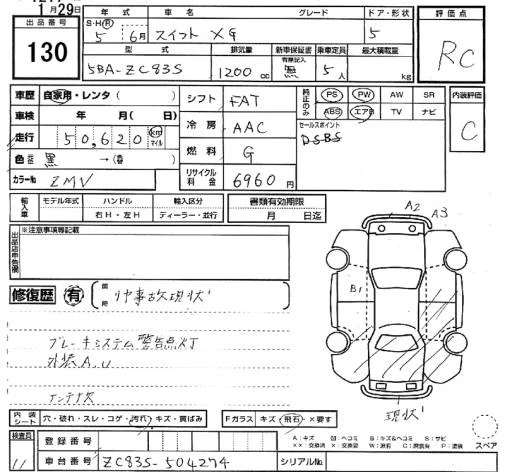 1月29日
出品番号 年式 車名 グレード ドア・形状 評価点
130
S・H・R 5 6月 スイフト XG 5 RC
型式 排気量 新車保証書 乗車定員 最大積載量
5BA-ZC83S 1200 cc 有・無 5人 kg
車歴 自家用・レンタ ( ) シフト FAT 純正のみ PS PW AW SR 内装評価
車検 年 月 ( 日) 冷房 AAC ABS エアB TV ナビ C
走行 50,620 km マイル セールスポイント
DSBS
色 黒 → ( ) 燃料 G
カラーNo ZMV リサイクル料金 6960円
輸入車 モデル年式 ハンドル 輸入区分 書類有効期限
右H・左H ディーラー・並行 月 日迄
出品店申告欄 ※注意事項等記載
A2 A3
B1
修復歴 有 箇所 事故現状
ブレーキシステム警告点灯
外装A.U
アンテナ欠
現状
内装シート 穴・破れ・スレ・コゲ・汚れ・キズ・黄ばみ Fガラス キズ・飛石・×要す
スペア
検査員 11 登録番号
車台番号 ZC83S-504274 シリアルNo